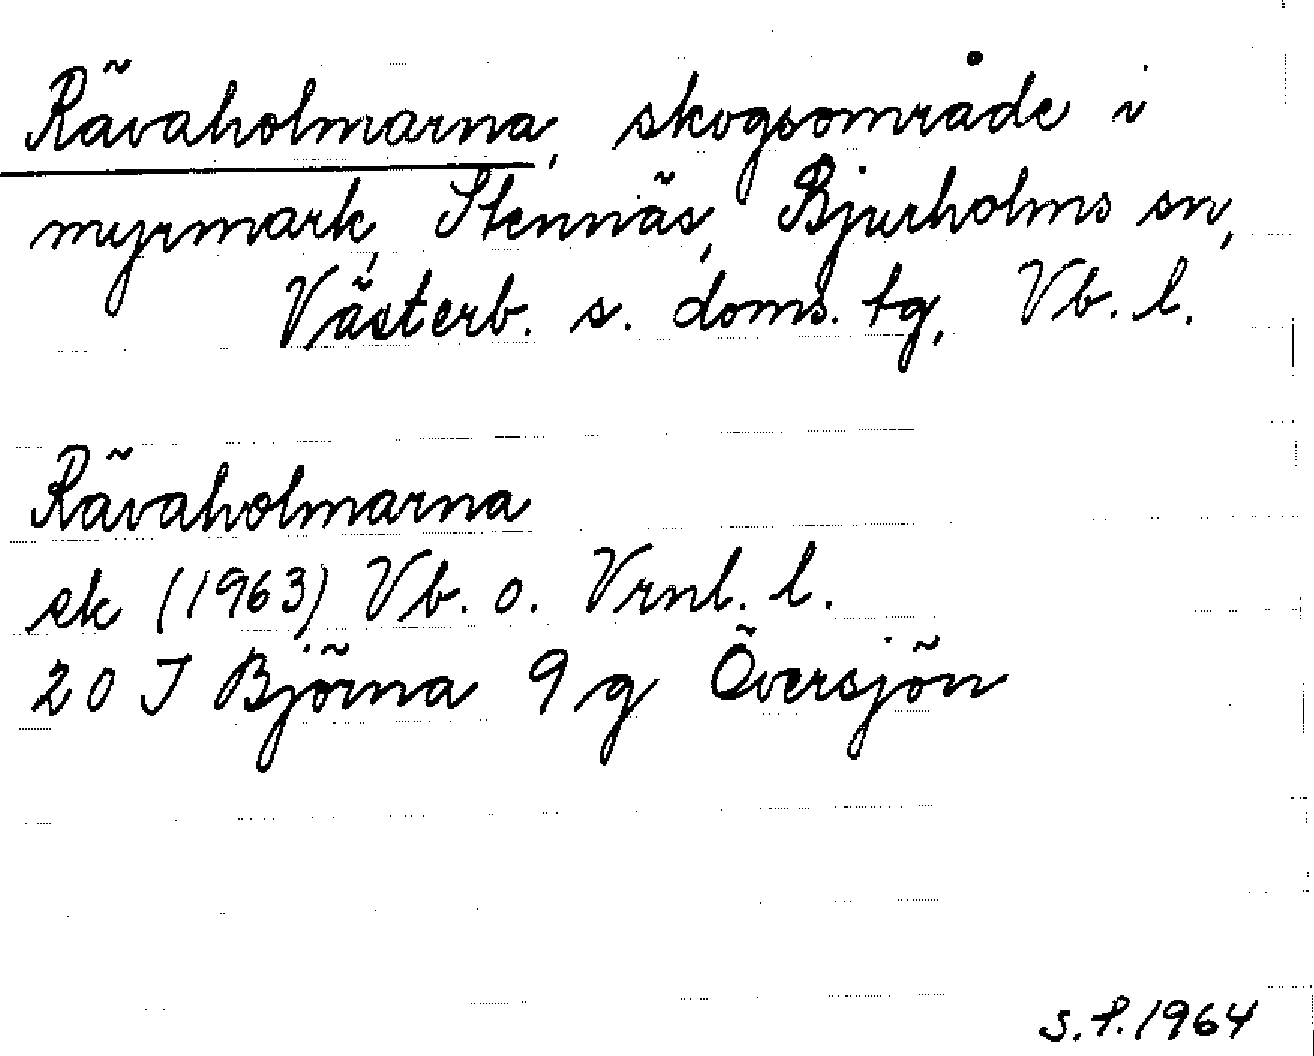 Rävaholmarna, skogsområde i
myrmark, Stennäs, Bjurholms sn,
Västerb. s. doms. tg, Vb. l.
Rävaholmarna
ek (1963) Vb. o. Vrnl. l.
20 J Björna 9 g Översjön
S.P. 1964